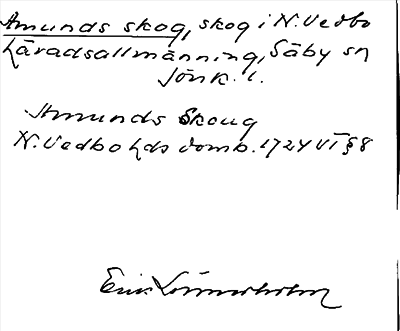 Amunds skog, skog i N. Vedbo
häradsallmänning, Säby sn
Jönk. l.
Amunds Skoug
N. Vedbo hds domb. 1724 VT § 8
Erik